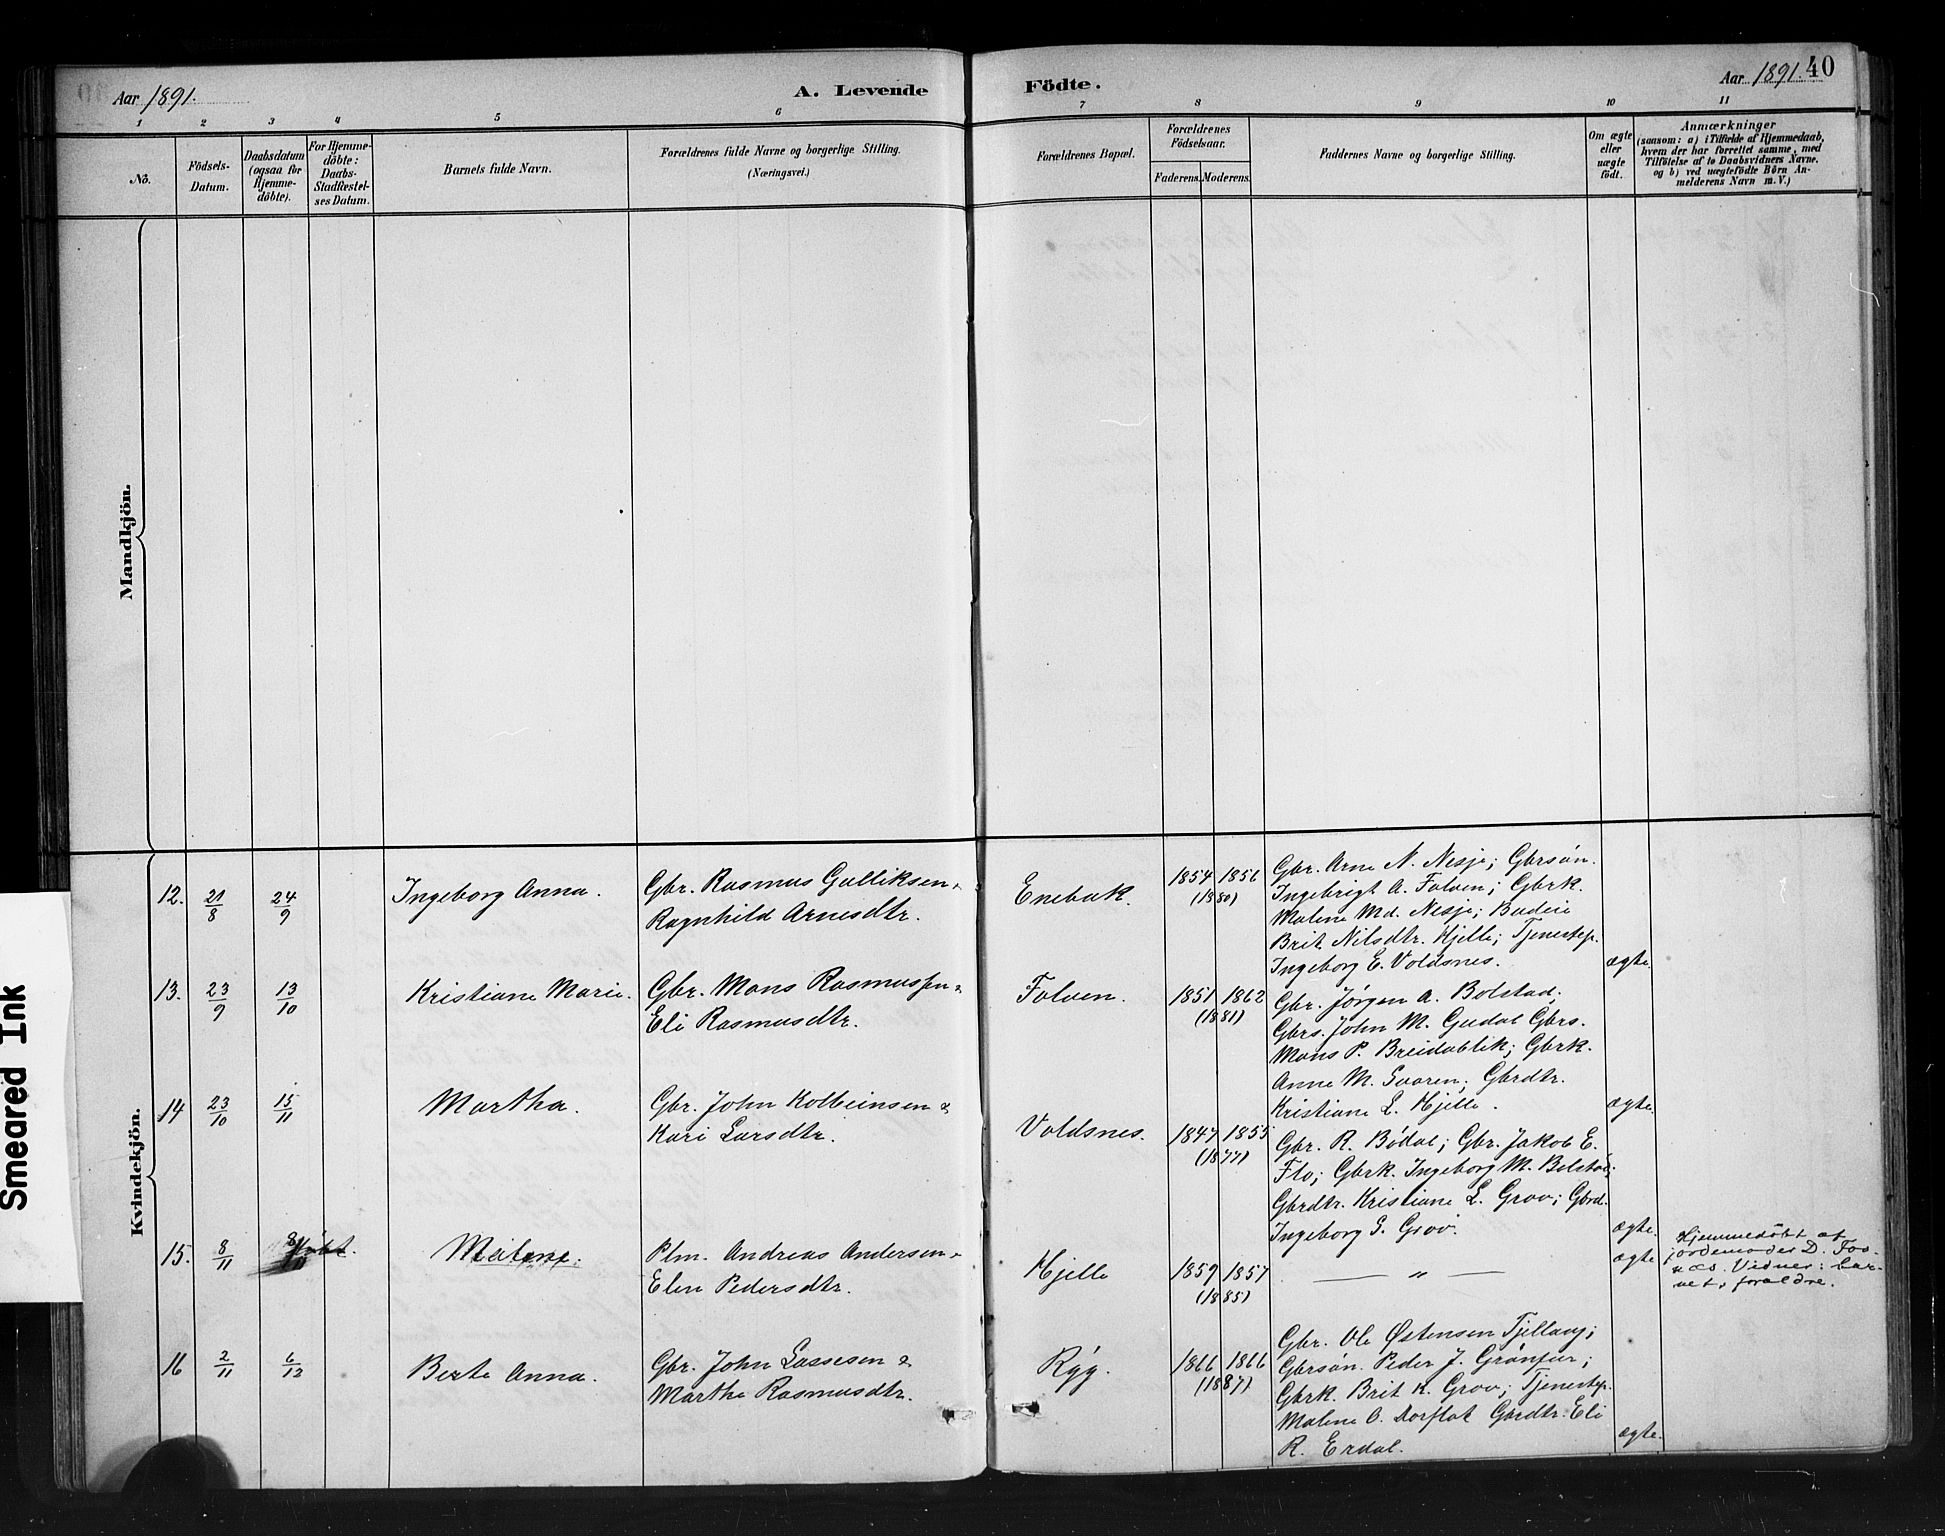 Aar 1891.
A. Levende
Födte.
Aar 1891. 40
1 2 3 4 5 6 7 8 9 10 11
No.
Födsels-
Datum.
Daabsdatum
(ogsaa for
Hjemme-
döbte).
For Hjemme-
döbte:
Daabs-
Stadfæstel-
ses Datum.
Barnets fulde Navn.
Forældrenes fulde Navne og borgerlige Stilling.
(Næringsvei.)
Forældrenes Bopæl.
Forældrenes
Födselsaar.
Faderens. Moderens.
Faddernes Navne og borgerlige Stilling.
Om ægte
eller
uægte
födt.
Anmærkninger
(saasom: a) i Tilfælde af Hjemmedaab,
hvem der har forrettet samme, med
Tilföielse af to Daabsvidners Navne,
og b) ved uægtefödte Börn An-
melderens Navn m. V.)
Mandkjön.
Kvindekjön.
12. 21/8 24/9 Ingeborg Anna.
Gbr. Rasmus Gulliksen &
Ragnhild Arnesdtr.
Enebak.
1854 1856
(1880)
Gbr. Arne N. Nesje; Gbrsøn.
Ingebrigt A. Folven; Gbrk.
Malene Md. Nesje; Budeie
Brit Nilsdtr. Hjelle; Tjenestep.
Ingeborg E. Voldsnes.
ægte.
13. 23/9 13/10 Kristiane Marie.
Gbr. Mons Rasmussen &
Eli Rasmusdtr.
Folven.
1851 1862
(1881)
Gbr. Jørgen A. Bolstad;
Gbrs. John M. Gudal Gbrs.
Mons P. Breidablik; Gbrk.
Anne M. Svoren; Gbrdtr.
Kristiane L. Hjelle.
ægte.
14 23/10 15/11 Martha.
Gbr. John Kolbeinsen &
Kari Larsdtr.
Voldsnes.
1847 1855
(1877)
Gbr. R. Bødal; Gbr. Jakob E.
Flo; Gbrk. Ingeborg M. Bolstad;
Gbrdtr. Kristiane L. Grov; Gbrd.
Ingeborg S. Grov.
ægte.
15. 8/11 8/11 Malene.
Plm. Andreas Andersen &
Elen Pedersdtr.
Hjelle
1859 1857
(1885)
— „ —
ægte
Hjemmedöbt af
jordemoder D. Fos-
næs. Vidner: bar-
nets forældre.
16 2/11 6/12 Berte Anna.
Gbr. John Lassesen &
Marthe Rasmusdtr.
Ryg.
1866 1866
(1887)
Gbr. Ole Østensen Tjellaug;
Gbrsøn. Peder J. Grønfur;
Gbrk. Brit K. Grov; Tjenestep.
Malene O. Dorflot Gbrdtr. Eli
R. Erdal.
ægte.
Smeared Ink